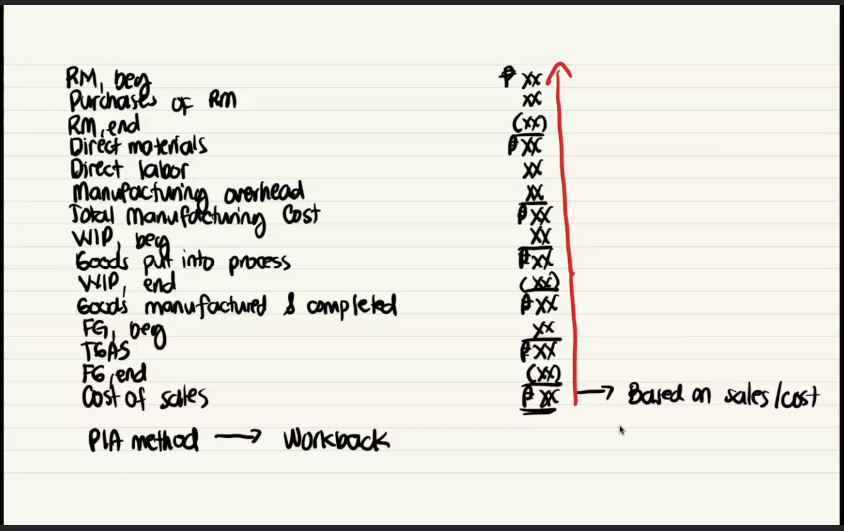 RM, beg ₱ xx
Purchases of RM xx
RM, end (xx)
Direct materials ₱ xx
Direct labor xx
Manufacturing overhead xx
Total Manufacturing Cost ₱ xx
WIP, beg xx
Goods put into process ₱ xx
WIP, end (xx)
Goods manufactured & completed ₱ xx
FG, beg xx
TGAS ₱ xx
FG, end (xx)
Cost of sales ₱ xx → Based on sales/cost
PIA method → Workback